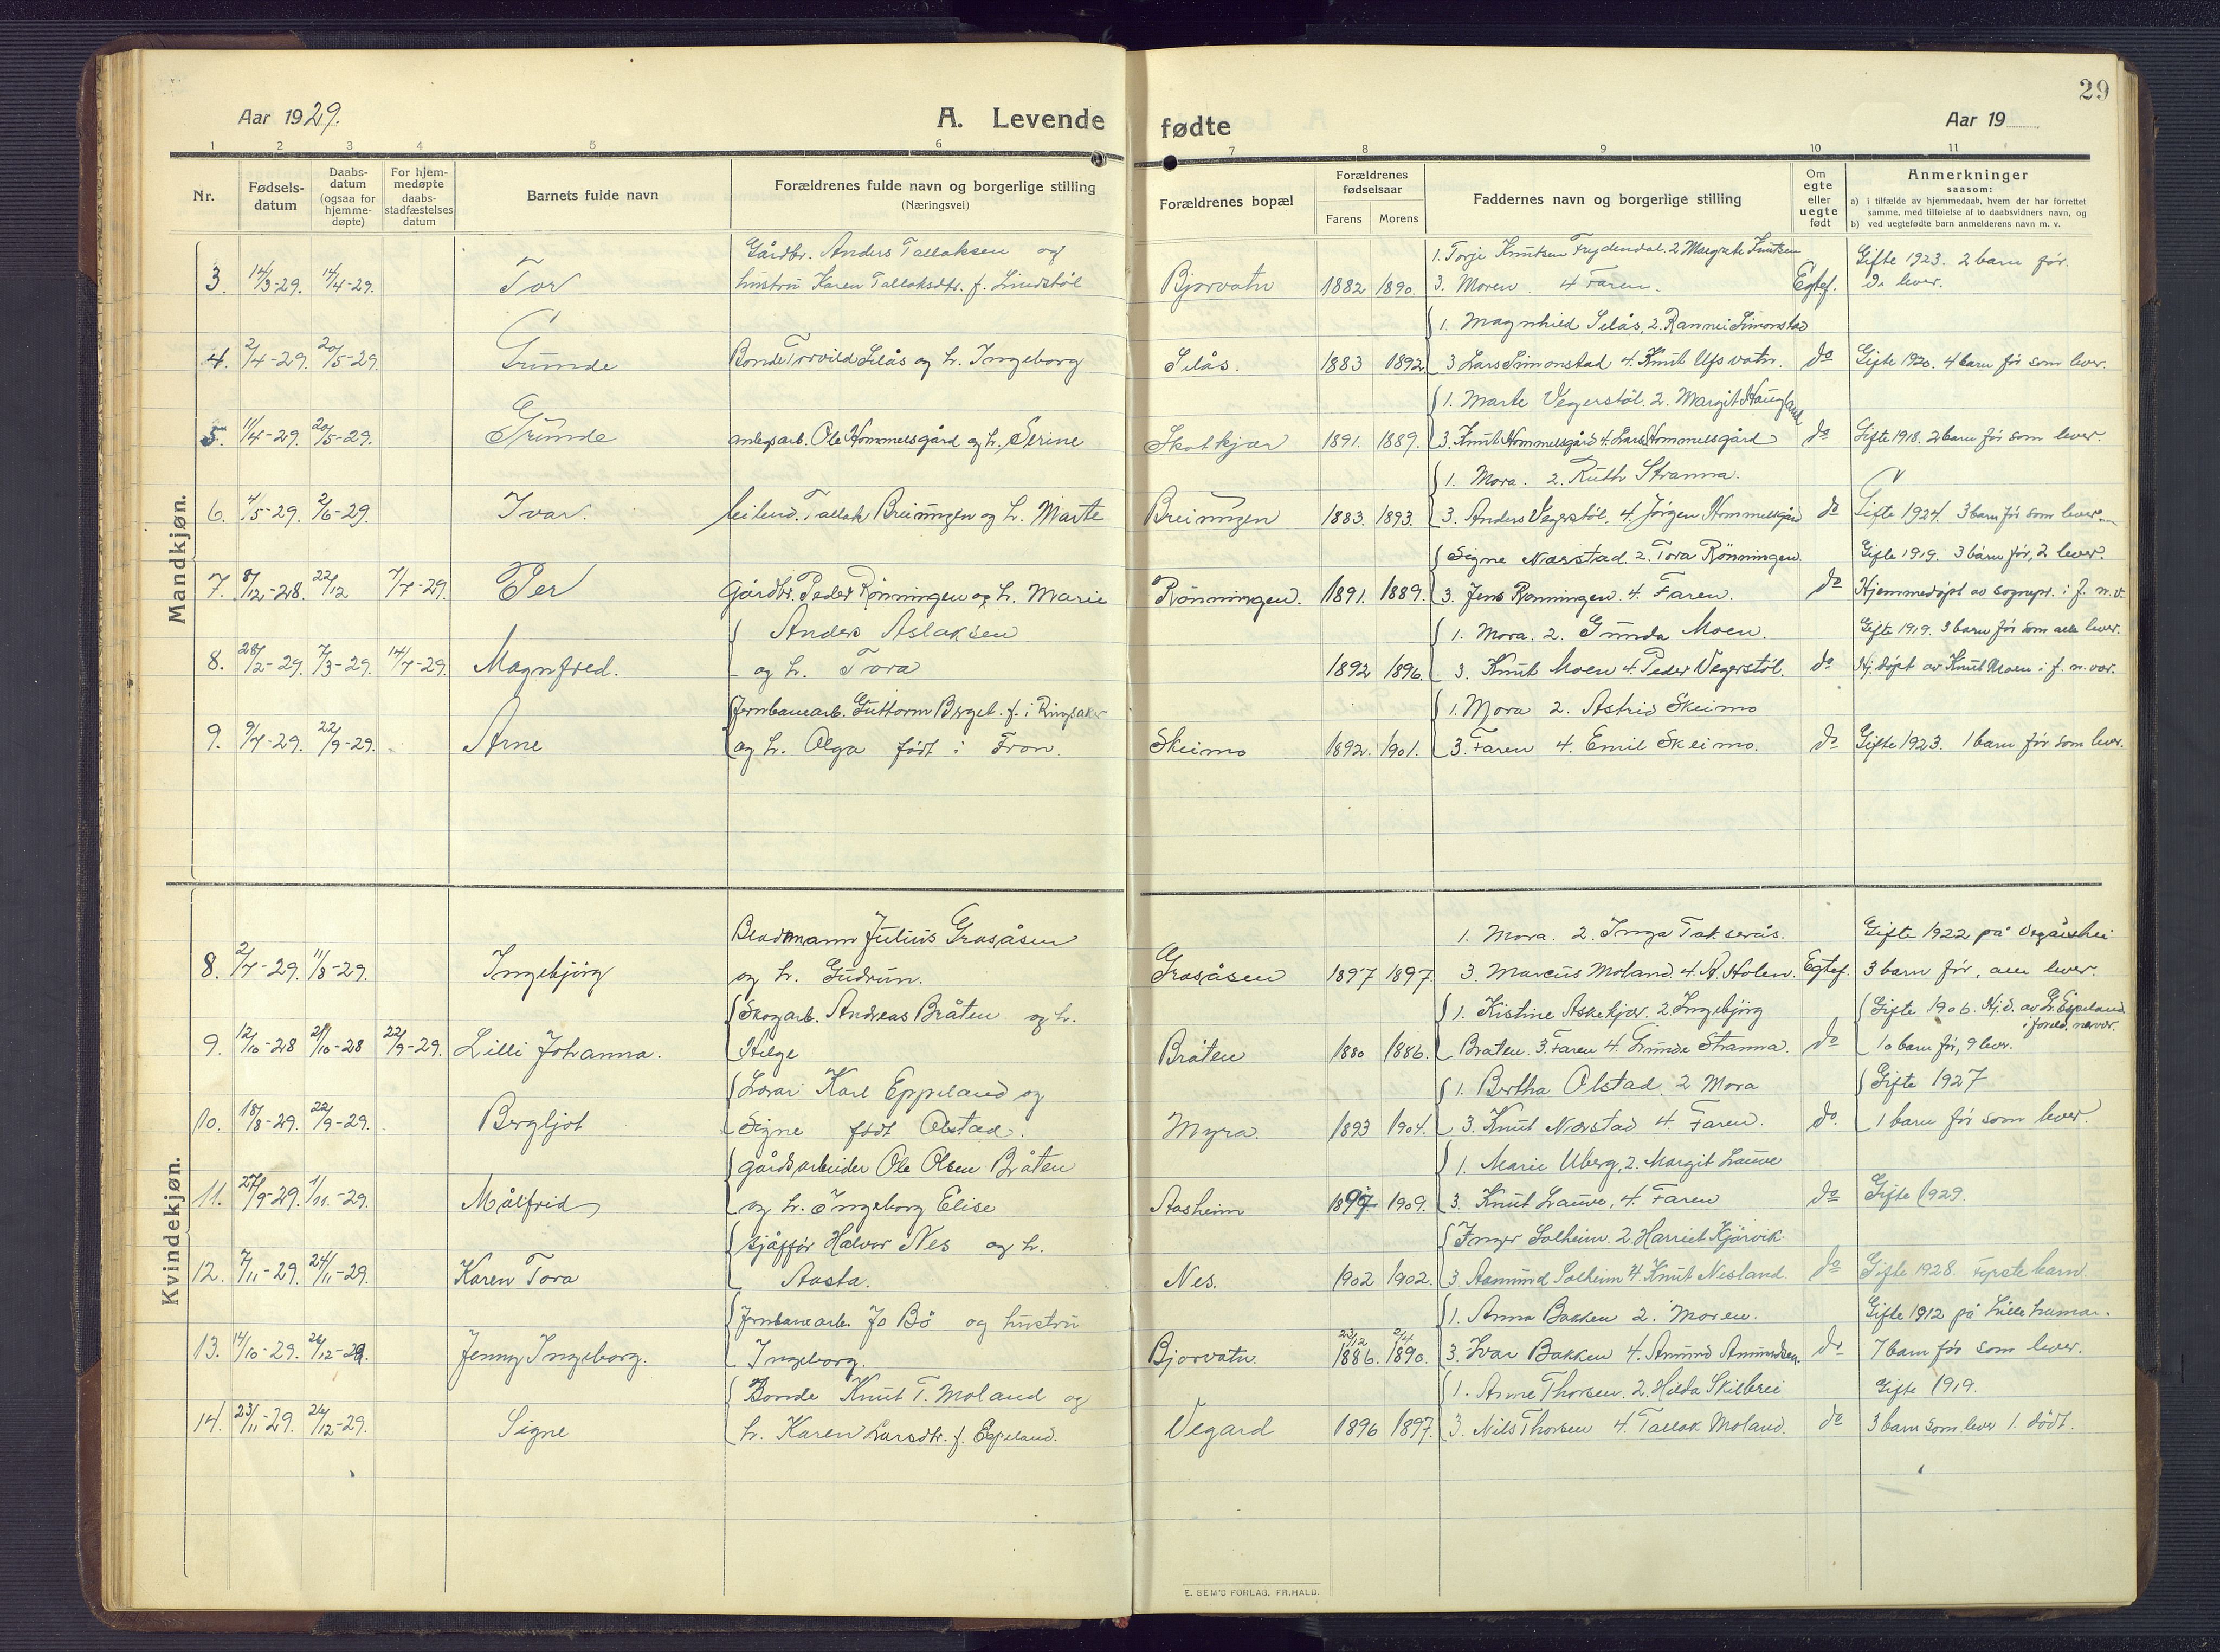 29
Aar 1929.
A. Levende
fødte
Aar 19
1 2 3 4 5 6 7 8 9 10 11
Nr.
Fødsels-
datum
Daabs-
datum
(ogsaa for
hjemme-
døpte)
For hjem-
medøpte
daabs-
stadfæstelses
datum
Barnets fulde navn
Forældrenes fulde navn og borgerlige stilling
(Næringsvei)
Forældrenes bopæl
Forældrenes
fødselsaar
Farens Morens
Faddernes navn og borgerlige stilling
Om
egte
eller
uegte
født
Anmerkninger
saasom:
a) i tilfælde av hjemmedaab, hvem der har forrettet
samme, med tilføielse af to daabsvidners navn, og
b) ved uegtefødte barn anmelderens navn m. v.
Mandkjøn.
Gårdbr. Anders Tallaksen og 1. Torje Knutsen Frydendal. 2 Margrete Knutsen Gifte 1923. 2 barn før.
3. 14/3-29. 14/4-29. Tor hustru Karen Tallaksdtr. f. Lindstøl Bjorvatn 1882 1890. 3. Moren. 4 Faren. Egtef. Do lever.
1. Magnhild Selås, 2. Rannei Simonstad
4. 2/4-29. 20/5-29. Gunde Bonde Torvild Selås og h. Ingeborg Selås. 1883 1892 3 Lars Simonstad 4. Knut Ufsvatn. do Gifte 1920. 4 barn før som lever.
1. Marte Vegerstøl. 2. Margit Haugland
5. 11/4-29. 20/5-29. Gunde anlegsarb. Ole Hommelsgård og h. Serine Skotkjær 1891. 1889. 3. Knut Hommelsgård 4. Lars Hommelsgård do Gifte 1918. 2 barn før som lever.
1. Mora. 2. Ruth Stranna.
6. 4/5-29. 2/6-29. Ivar. Tallak Breiungen og h. Marte Breiungen 1883. 1893. 3. Anders Vegerstøl. 4. Jörgen Hommelsgård do Gifte 1924. 3 barn før som lever.
Signe Nærstad. 2. Tora Rønningen. Gifte 1919. 3 barn før, 2 lever.
7. 8/12-28. 22/12 7/7-29. Per Gårdbr. Peder Rønningen og h. Marie Rønningen. 1891. 1889. 3. Jens Rønningen. 4. Faren. do Hjemmedøpt av sognepr. i f. n. v.
Anders Aslaksen 1. Mora. 2. Gunda Moen. Gifte 1919. 3 barn før som alle lever.
8. 28/2-29. 7/3-29. 14/7-29. Magnfred. og h. Tora 1892 1896. 3. Knut Moen 4. Peder Vegerstøl. do Hj. døpt av Knut Moen i f. n. vær.
Jernbanearb. Guttorm Berget. f. i Ringsaker 1. Mora 2. Astrid Skeimo
9. 9/7-29. 22/9-29. Arne og h. Olga født i Fron. Skeimo 1892. 1901. 3. Faren 4. Emil Skeimo. do Gifte 1923. 1 barn før som lever.
Kvindekjøn.
Bladmann Julius Grasåsen 1. Mora. 2. Inga Takserås. Gifte 1922 på Vegårshei
8. 2/7-29. 11/8-29. Ingebjörg og h. Gudrun. Grasåsen 1897 1897. 3. Marcus Moland. 4. A. Holen. Egtef. 3 barn før, alle lever.
Skogarb. Andreas Bråten og h. 1. Kistine Askekjær. 2 Ingebjörg Gifte 1906. Hj. d. av Gr. Eppeland
i foreld. nærvær.
9. 12/10-28 21/10-28 22/9-29. Lilli Johanna. Helge Bråten 1880 1886. Braten. 3. Faren 4. Gunde Stranna. do 10 barn før, 9 lever.
Lærar Karl Eppeland og 1. Bertha Olstad. 2 Mora Gifte 1927
10. 18/8-29. 22/9-29. Bergljot Signe født Olstad. Myra. 1893 1904. 3. Knut Nærstad 4. Faren. do. 1 barn før som lever.
gårdsarbeider Ole Olsen Bråten 1. Marie Uberg, 2. Margit Lauve
11. 27/9-29. 1/11.-29. Målfrid og h. Ingeborg Elise Aasheim 1897 1909. 3. Knut Lauve, 4. Faren do Gifte 1929.
Sjåffør Halvor Nes og h. Inger Solheim. 2 Harriet Kjörvik.
12. 7/11-29. 24/11-29. Karen Tora Aasta. Nes. 1902 1902. 3. Aamund Solheim 4. Knut Nesland. do Gifte 1928. Første barn.
Jernbanearb. Jo Bö og hustru 1. Anna Bakken 2. Moren. Gifte 1912 på Lillehammer.
13. 14/10-29. 26/12-29. Jenny Ingeborg. Ingeborg. Bjorvatn. 23/12 1886. 2/4 1890. 3. Ivar Bakken 4. Amund Amundsen. do 7 barn før som lever.
Bonde Knut T. Moland og 1. Anne Thorsen. 2. Hilda Skilbrei Gifte 1919.
14. 23/11-29. 26/12-29. Signe h. Karen Larsdtr. f. Eppeland. Vegard 1896 1897. 3. Nils Thorsen 4. Tallak Moland. do 3 barn som lever 1. dödt.
E. SEM'S FORLAG, FR.HALD.